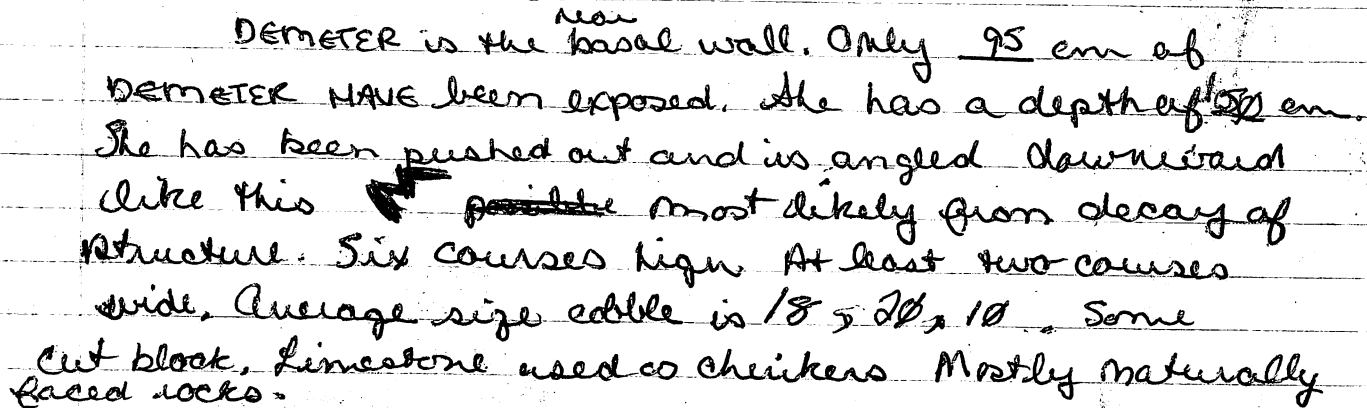 near
DEMETER is the basal wall. Only 95 cm of
DEMETER HAVE been exposed. She has a depth of 150 cm.
She has been pushed out and is angled downward
like this possible most likely from decay of
structure. Six courses high. At least two courses
wide. Average size cobble is 18, 20, 10. Some
cut block. Limestone used as chinkers Mostly naturally
faced rocks.